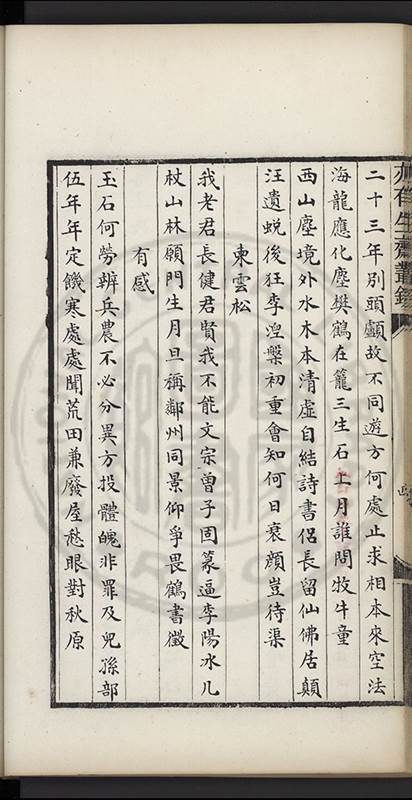 二十三年別頭顱故不同遊方何處止求相本來空法
海龍應化塵樊鶴在籠三生石上月誰問牧牛童
西山塵境外水木本清虛自結詩書侶長留仙佛居顛
汪遺蛻後狂李湼槃初重會知何日衰顏豈待渠
東雲松
我老君長健君賢我不能文宗曾子固篆逼李陽冰几
杖山林願門生月旦稱鄰州同景仰爭畏鶴書徵
有感
玉石何勞辨兵農不必分異方投體魄非罪及兒孫部
伍年年定饑寒處處聞荒田兼廢屋愁眼對秋原